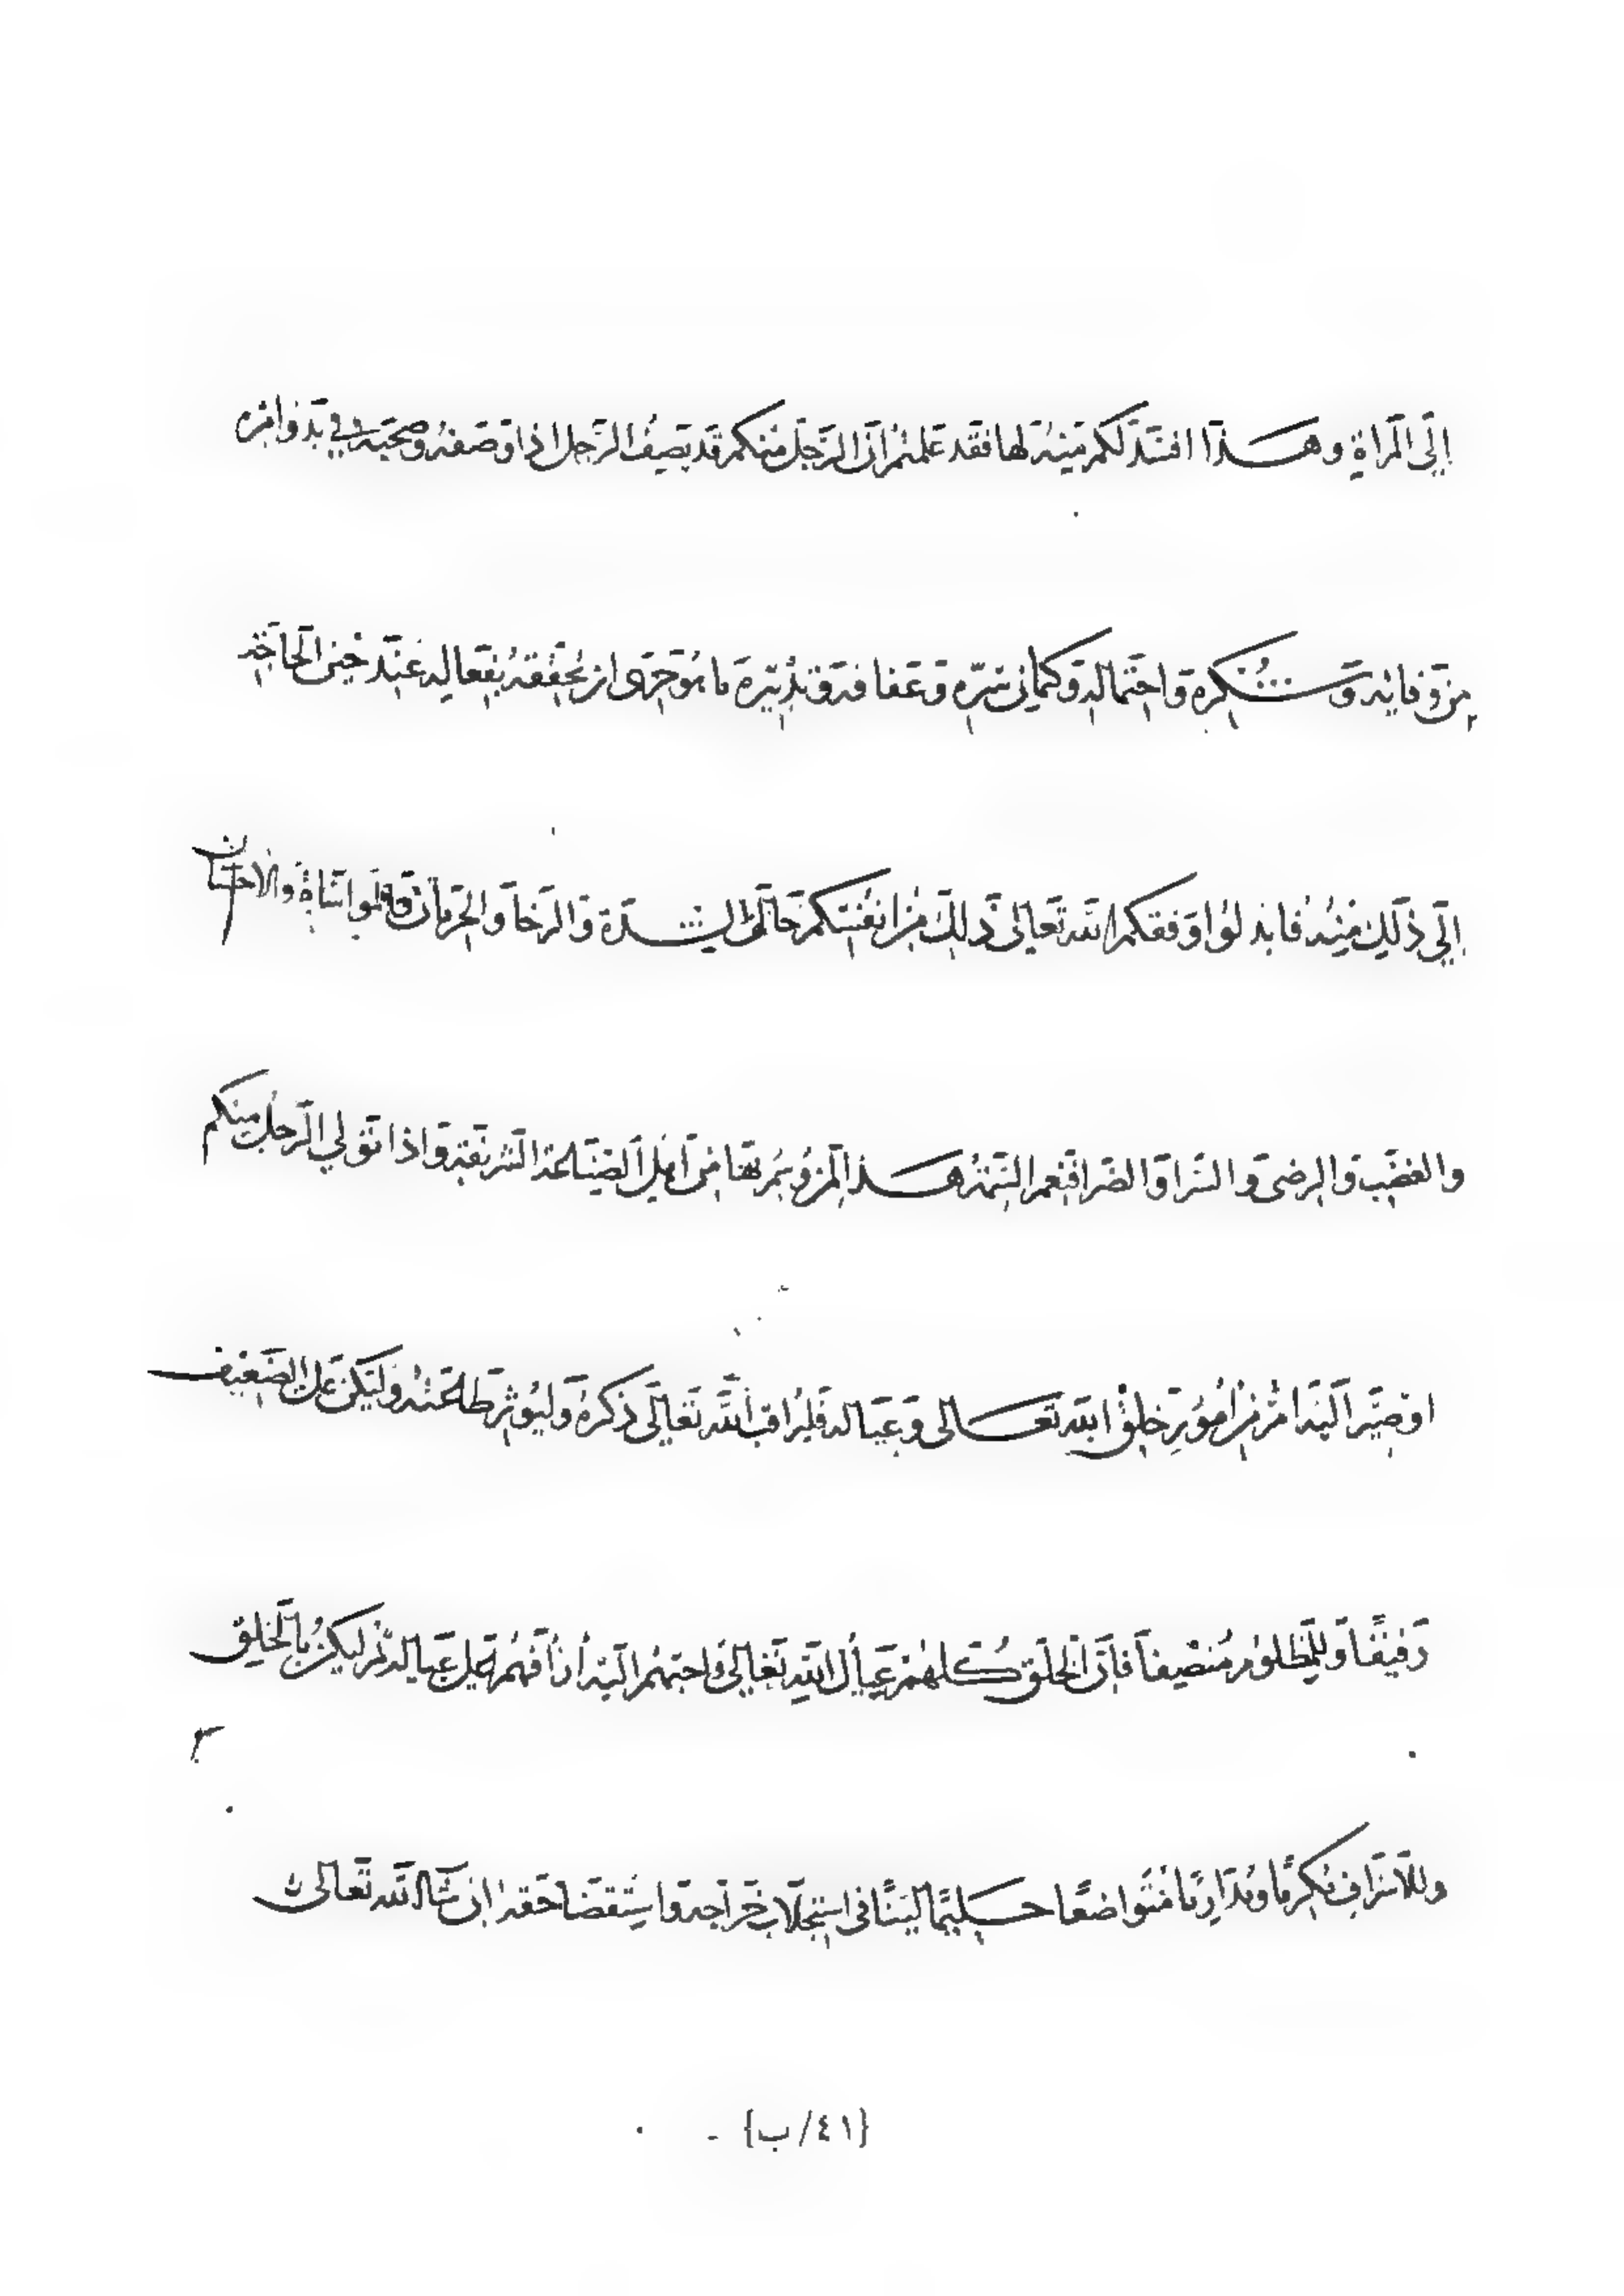 الى المراة وهذا افسد لكم منه لها فقد علمتم ان الرجل منكم قد يصف الرجل اذا وصفه وصحبه في بدو امره
من وفائه وشكره واحتماله وكتمانى سره وعفافه وتدبيره ما هو حرى ان يحققه بفعاله عند حين الحاجة
الى ذلك منه فابذلوا وفقكم الله تعالى ذلك من انفسكم حالة الشدة والرخا والحرمان والمواساة والاحسان
والغضب والرضى والسرا والضرا فنعم السمة هذا لمن وسم بها من اهل الصناعة الشريفة واذا تولى الرجل منكم
او صير اليه امر من امور خلق الله تعالى وعياله فليراقب الله تعالى ذكره وليوثر طاعته وليكن على الضعيف
رفيقا وللمظلوم منصفا فان الخلق كلهم عيال الله تعالى واحبهم اليه ارافهم على عياله ثم ليكن بالخلق
وللاشراف مكرما ومداريا متواضعا حليما لينا فى استجلاب خراجه واستقضا حقه ان شا الله تعالى
{٤١/ب}